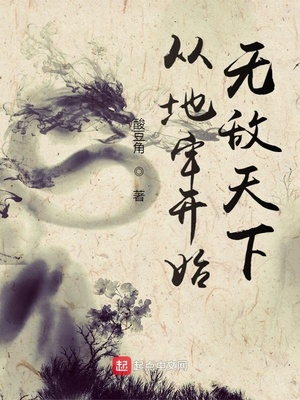 无敌天下
从地牢开始
酸豆角 ◎ 著
起 起点中文网